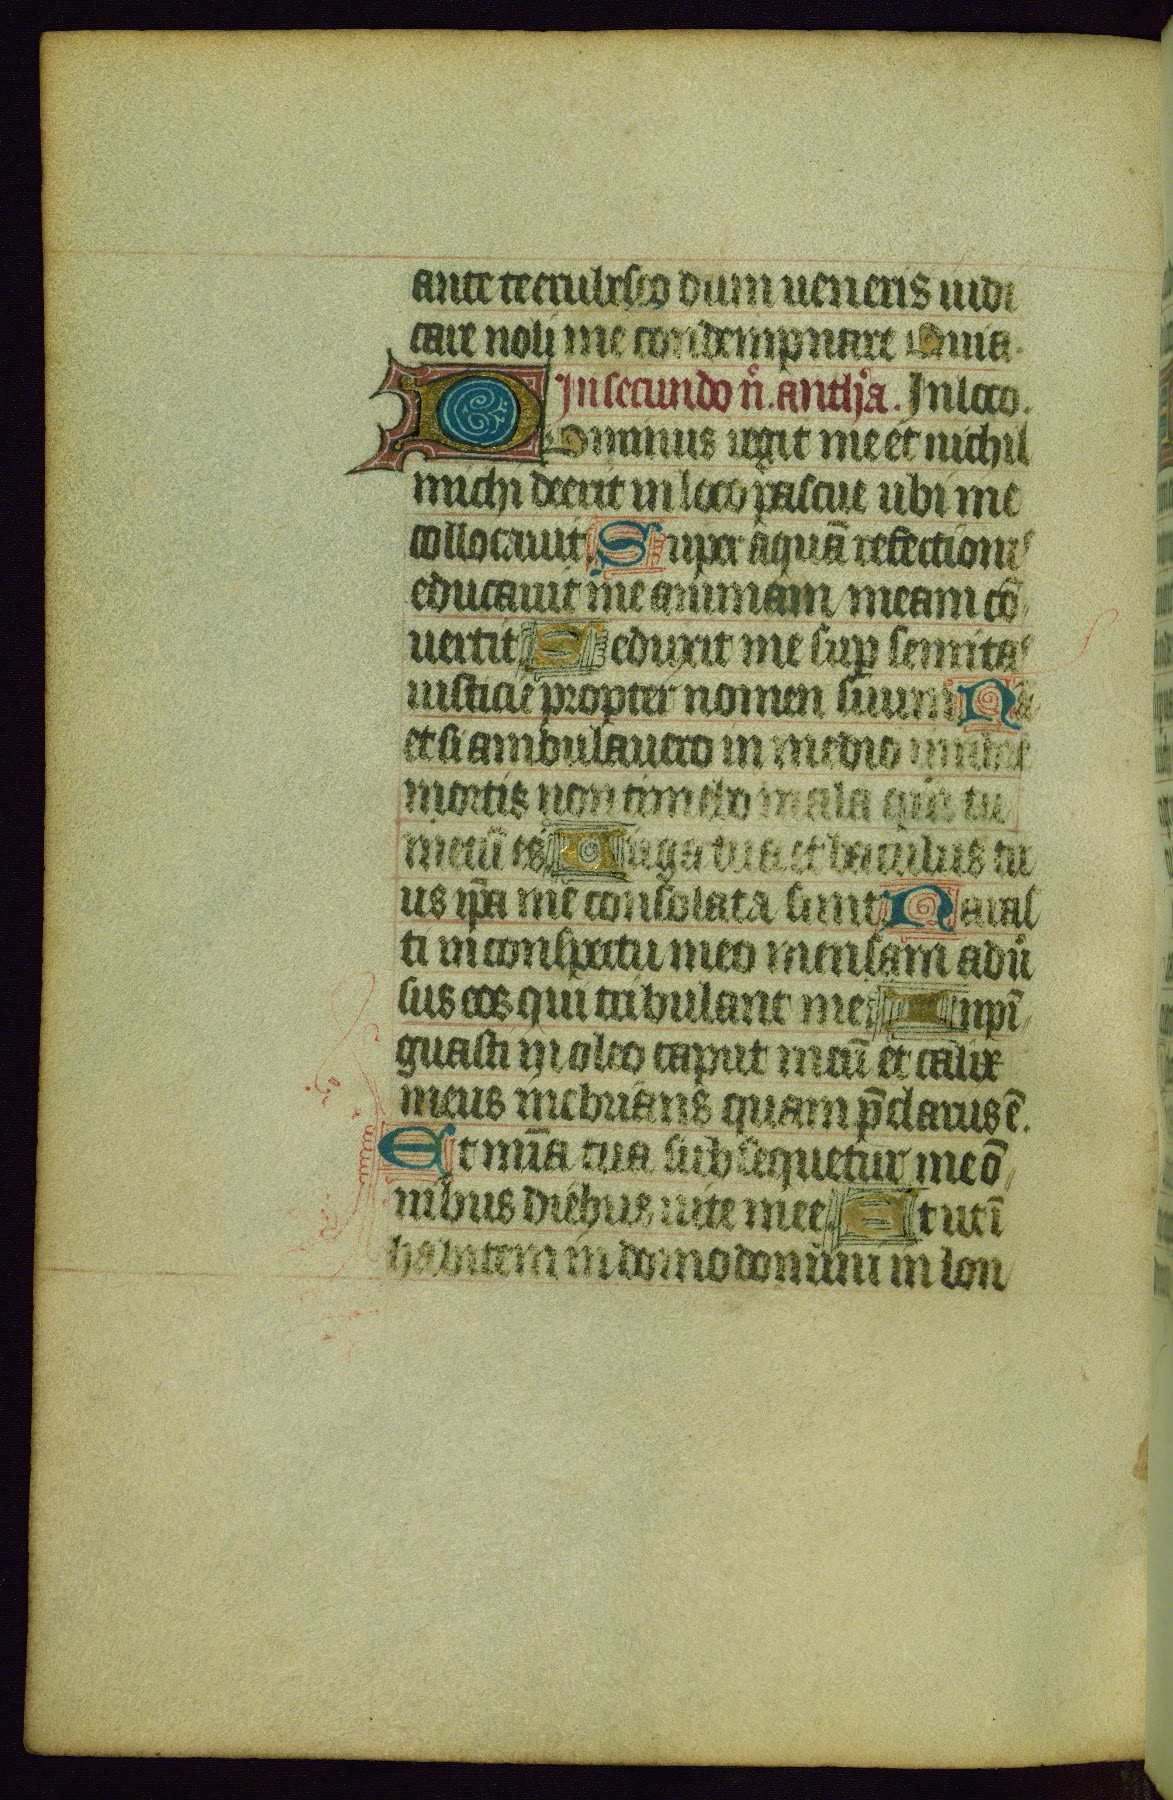 ante te erubesco dum ueneris iudi
care noli me condempnare Quia.
In secundo n̄. anthā. In loco.
Dominus regit me et nichil
michi deerit in loco pascue ubi me
collocauit. Super aquā refectionis
educauit me animam meam cō
uertit Deduxit me sup semitas
iusticie propter nomen suum Nā
et si ambulauero in medio umbre
mortis non timebo mala qm̄ tu
mecū es Uirga tua et baculus tu
us ip̄a me consolata sunt Paras
ti in conspectu meo mensam adū
sus eos qui tribulant me Inpī
guasti in oleo caput meū et calix
meus inebrians quam p̄clarus ē.
Et mīa tua subsequetur me ō
nibus diebus uite mee Et ut ī
habitem in domo domini in lon